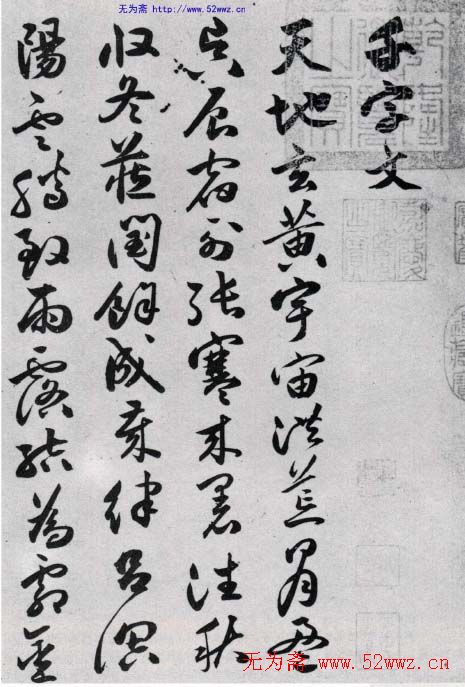 无为斋 http://www.52wwz.cn
千字文
天地玄黃宇宙洪荒日月盈
昃辰宿列張寒来暑往秋
收冬蔵閏餘成歲律呂調
陽雲騰致雨露結為霜金
无为斋 www.52wwz.cn